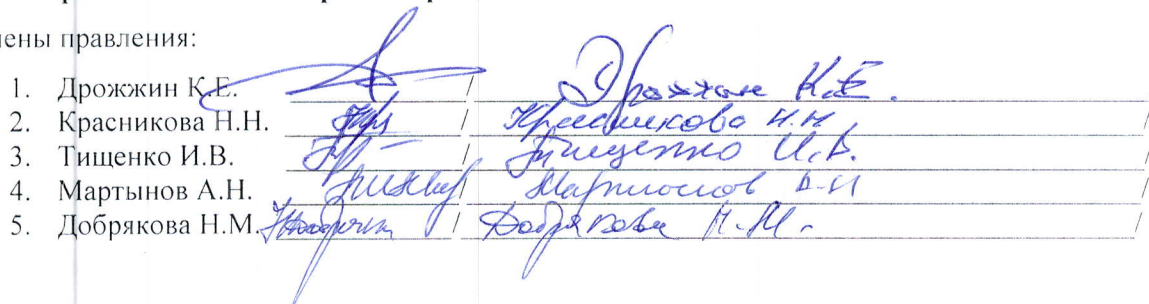 лены правления:
1. Дрожжин К.Е. / Дрожжин К.Е. /
2. Красникова Н.Н. / Красникова Н.Н. /
3. Тищенко И.В. / Тищенко И.В. /
4. Мартынов А.Н. / Мартынов А.Н. /
5. Добрякова Н.М. / Добрякова Н.М. /